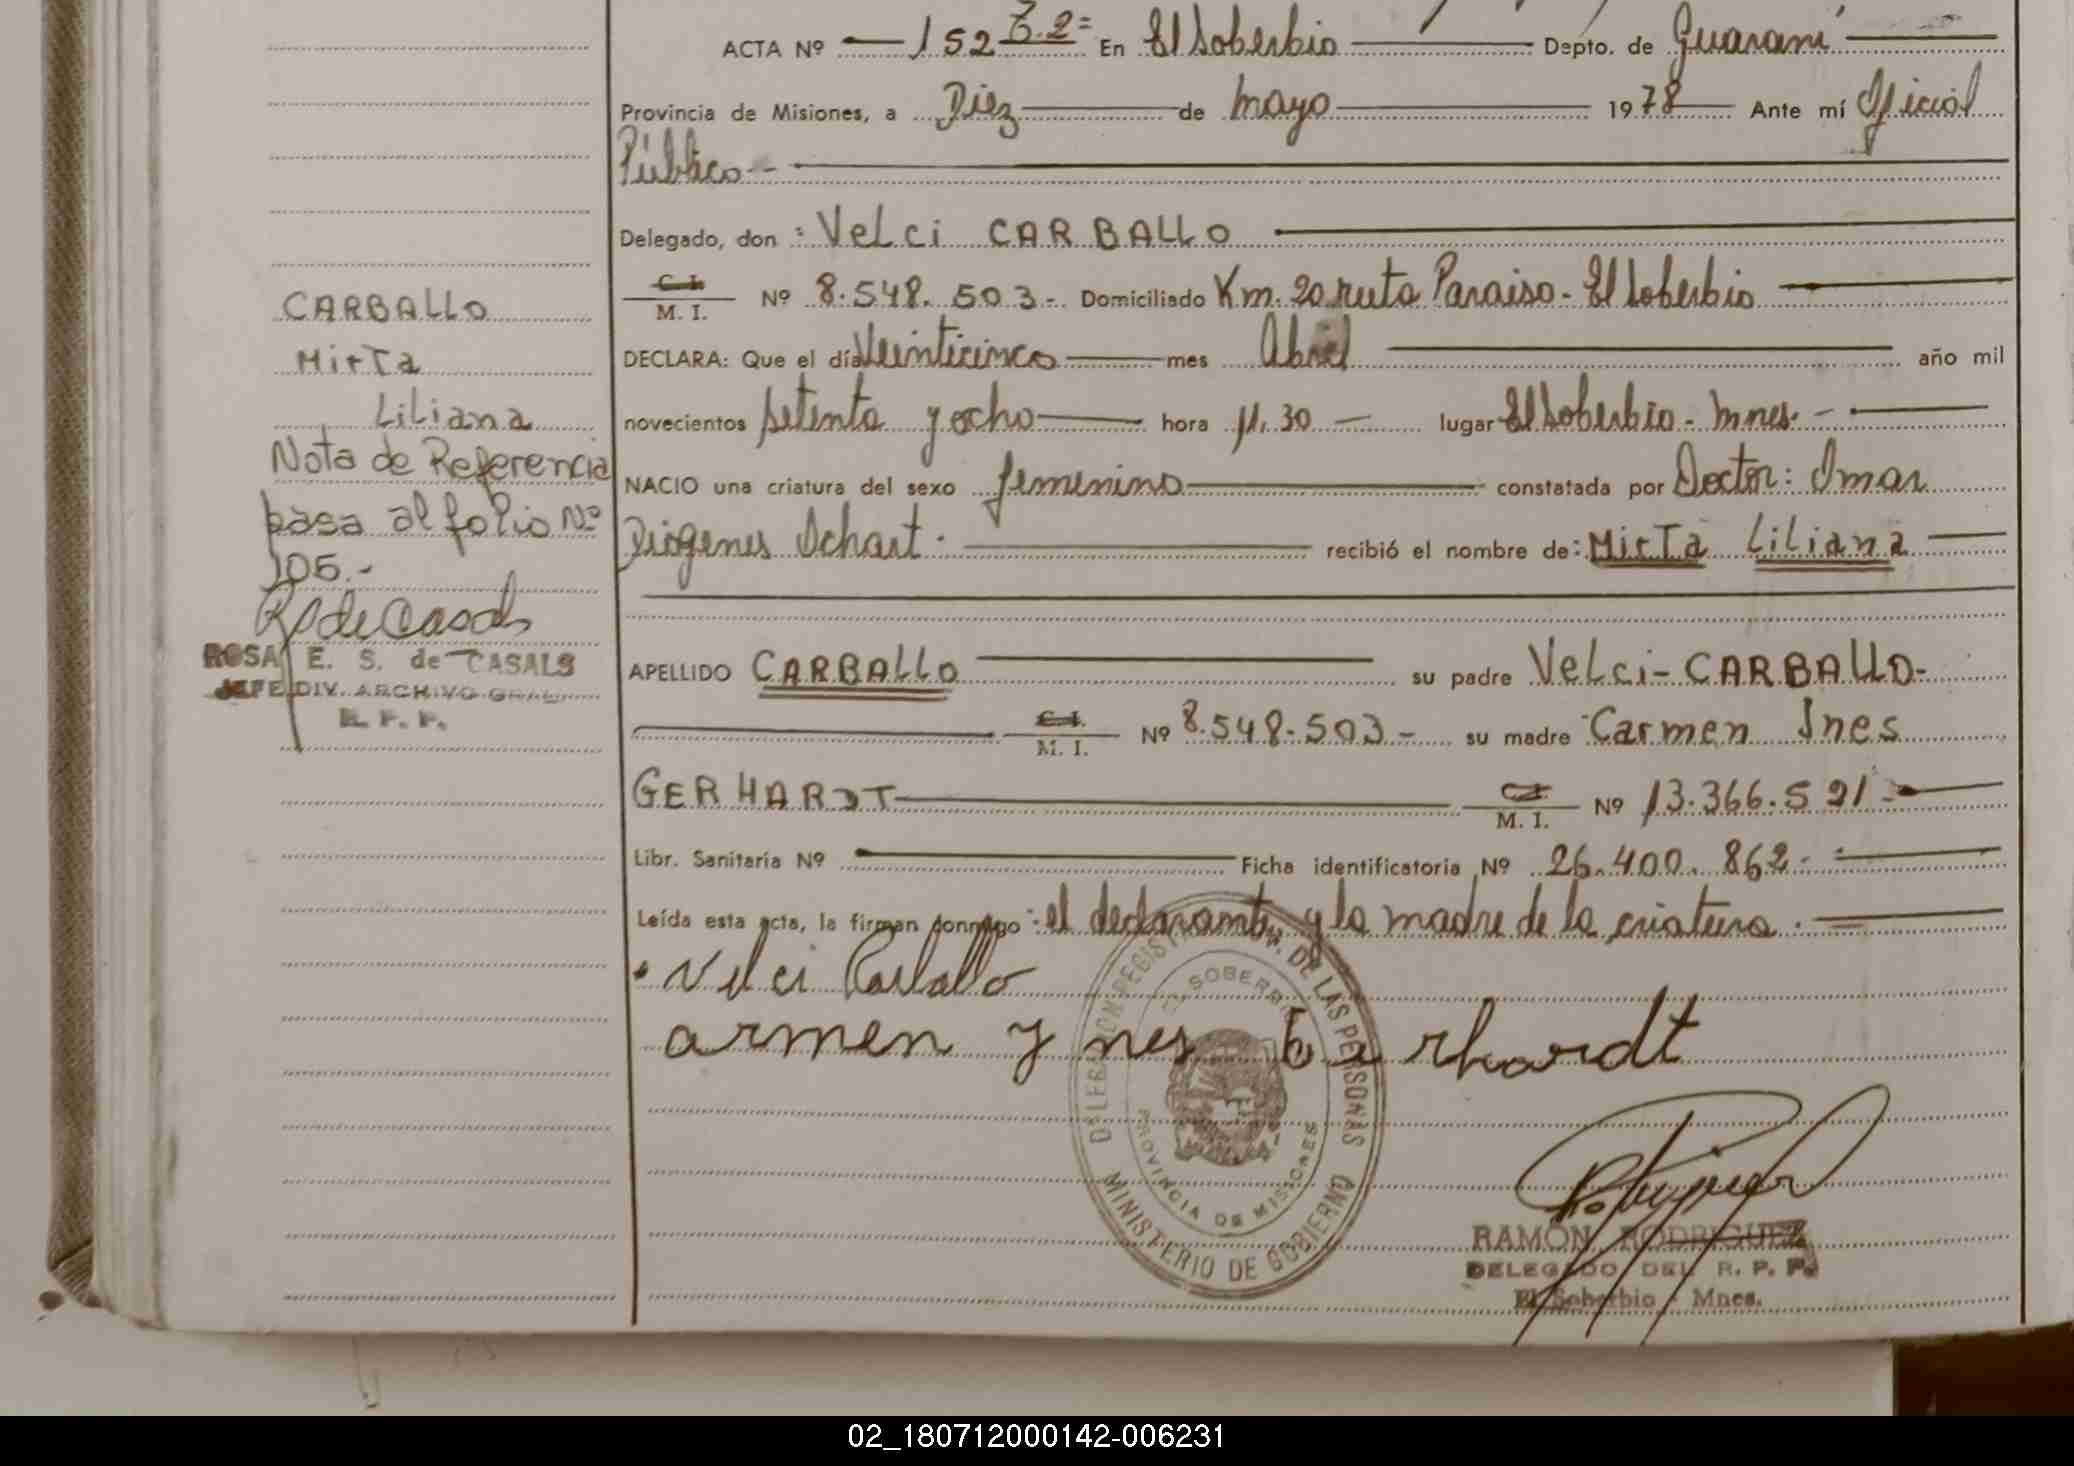 ACTA Nº 152 T.2= En El Soberbio Depto. de Guaraní
Provincia de Misiones, a Diez de mayo 1978 Ante mí Oficial
Público
Delegado, don : VeLci CARBALLO
C. I. M. I. Nº 8.548.503- Domiciliado Km. 20 ruta Paraiso- El Soberbio
DECLARA: Que el día Veinticinco mes Abril año mil
novecientos setenta y ocho hora 11.30 lugar El Soberbio- Mnes.-
NACIO una criatura del sexo femenino constatada por Doctor: Omar
Diógenes Schart. recibió el nombre de: MirTa LiLiana
APELLIDO CARBALLO su padre VeLci-CARBALLO-
C. I. M. I. Nº 8.548.503- su madre Carmen Ines
GERHARDT C. I. M. I. Nº 13.366.521-
Libr. Sanitaria Nº Ficha identificatoria Nº 26.400.862-
Leída esta acta, la firman conmigo: el declarante y la madre de la criatura.
Velci Carballo
armen y nes Gerhardt
CARBALLO
MirTa
LiLiana
Nota de Referencia
pasa al folio Nº
105.-
RSdeCasals
ROSA E. S. de CASALS
JEFE DIV. ARCHIVO GRAL.
R. P. P.
DELEGACION REGISTRO PROV. DE LAS PERSONAS
EL SOBERBIO
PROVINCIA DE MISIONES
MINISTERIO DE GOBIERNO
RAMÓN RODRIGUEZ
DELEGADO DEL R. P. P.
El Soberbio - Mnes.
02_180712000142-006231